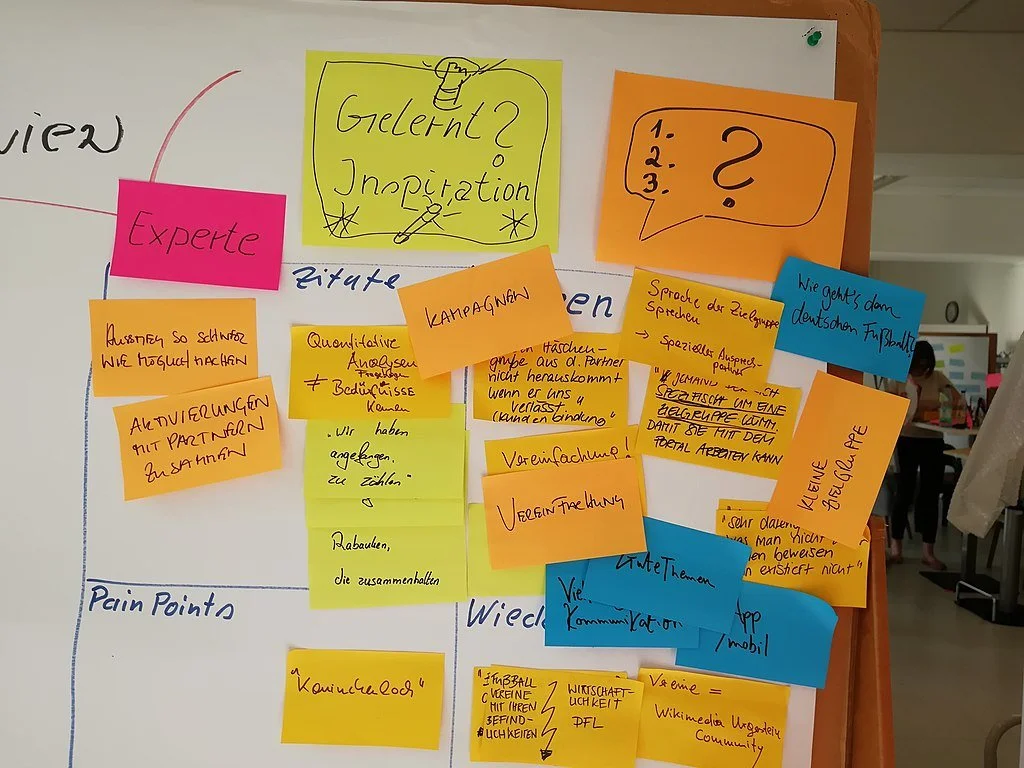 Gelernt?
Inspiration
1.
2.
3.
?
Experte
Zitate
KAMPAGNEN
Sprache der Zielgruppe
Sprechen
→ spezieller Ansprech-
partner
Wie geht's dem
deutschen Fußball?
WIE MÖGLICH MACHEN
AKTIVIERUNGEN
MIT PARTNERN
ZUSAMMEN
Quantitative
Analysen
≠ Bedürfnisse
kennen
grube aus d. Partner
nicht herauskommt
wenn er uns
verlässt."
(Kundenbindung)
SPEZIFISCH UM EINE
ZIELGRUPPE KÜMM.
DAMIT SIE MIT DEM
PORTAL ARBEITEN KANN
KLEINE
ZIELGRUPPE
"Wir haben
angefangen.
zu zählen"
Vereinfachung!
VEREINFACHUNG
was man nicht
beweisen
existiert nicht"
Rabauken,
die zusammenhalten
Gute Themen
Kommunikation
App
/mobil
Pain Points
Wied
"Kaninchenloch"
"FUßBALL
VEREINE
MIT IHREN
BEFIND-
LICHKEITEN
WIRTSCHAFT-
LICHKEIT
DFL
Vereine =
Wikimedia Urgestein
Community